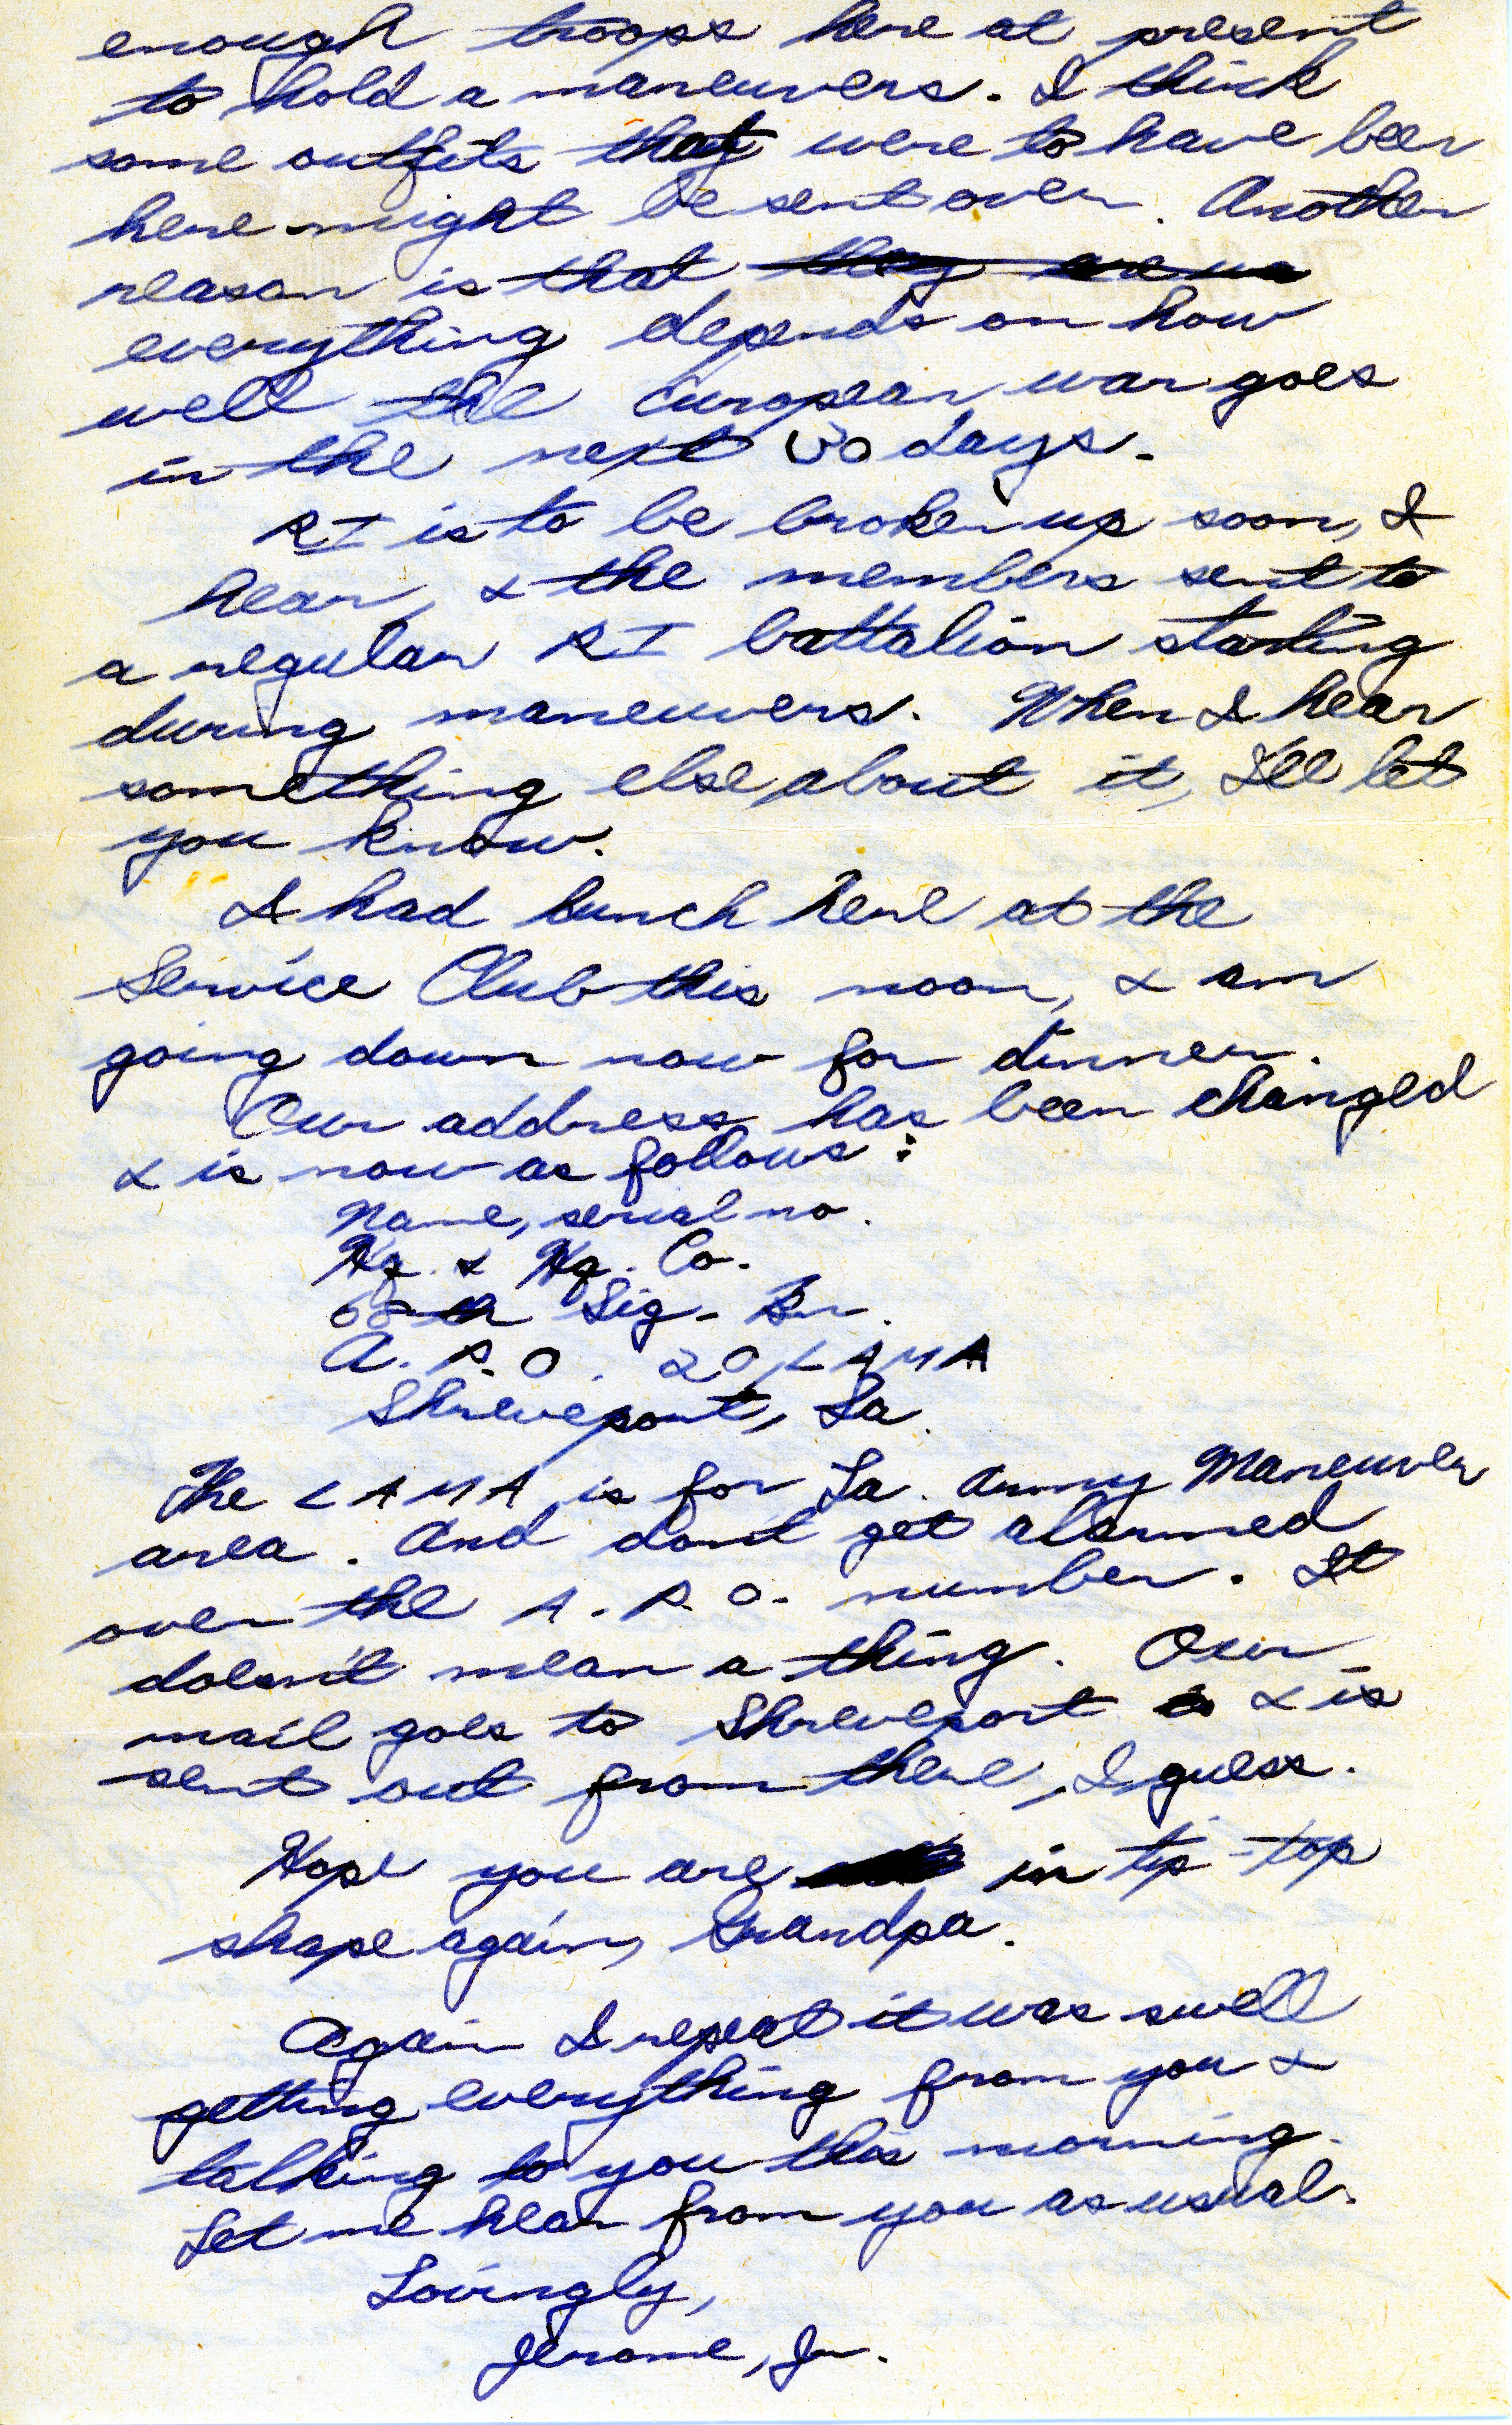 enough troops here at present
to hold a maneuvers. I think
some outfits that were to have been
here might be sent over. Another
reason is that they are no
everything depends on how
well the European war goes
in the next 30 days.
RI is to be broken up soon, I
hear, & the members sent to
a regular RI battalion starting
during maneuvers. When I hear
something else about it, I'll let
you know.
I had lunch here at the
Service Club this noon, & am
going down now for dinner.
Our address has been changed
& is now as follows:
Name, serial no.
Hq. & Hq. Co.
68th Sig. Bn.
A.P.O. 20, LAMA
Shreveport, La.
The LAMA is for La. Army Maneuver
area. And don't get alarmed
over the A.P.O. number. It
doesn't mean a thing. Our
mail goes to Shreveport & is
sent out from there, I guess.
Hope you are in tip-top
shape again, Grandpa.
Again I repeat it was swell
getting everything from you &
talking to you this morning.
Let me hear from you as usual.
Lovingly,
Jerome, Jr.